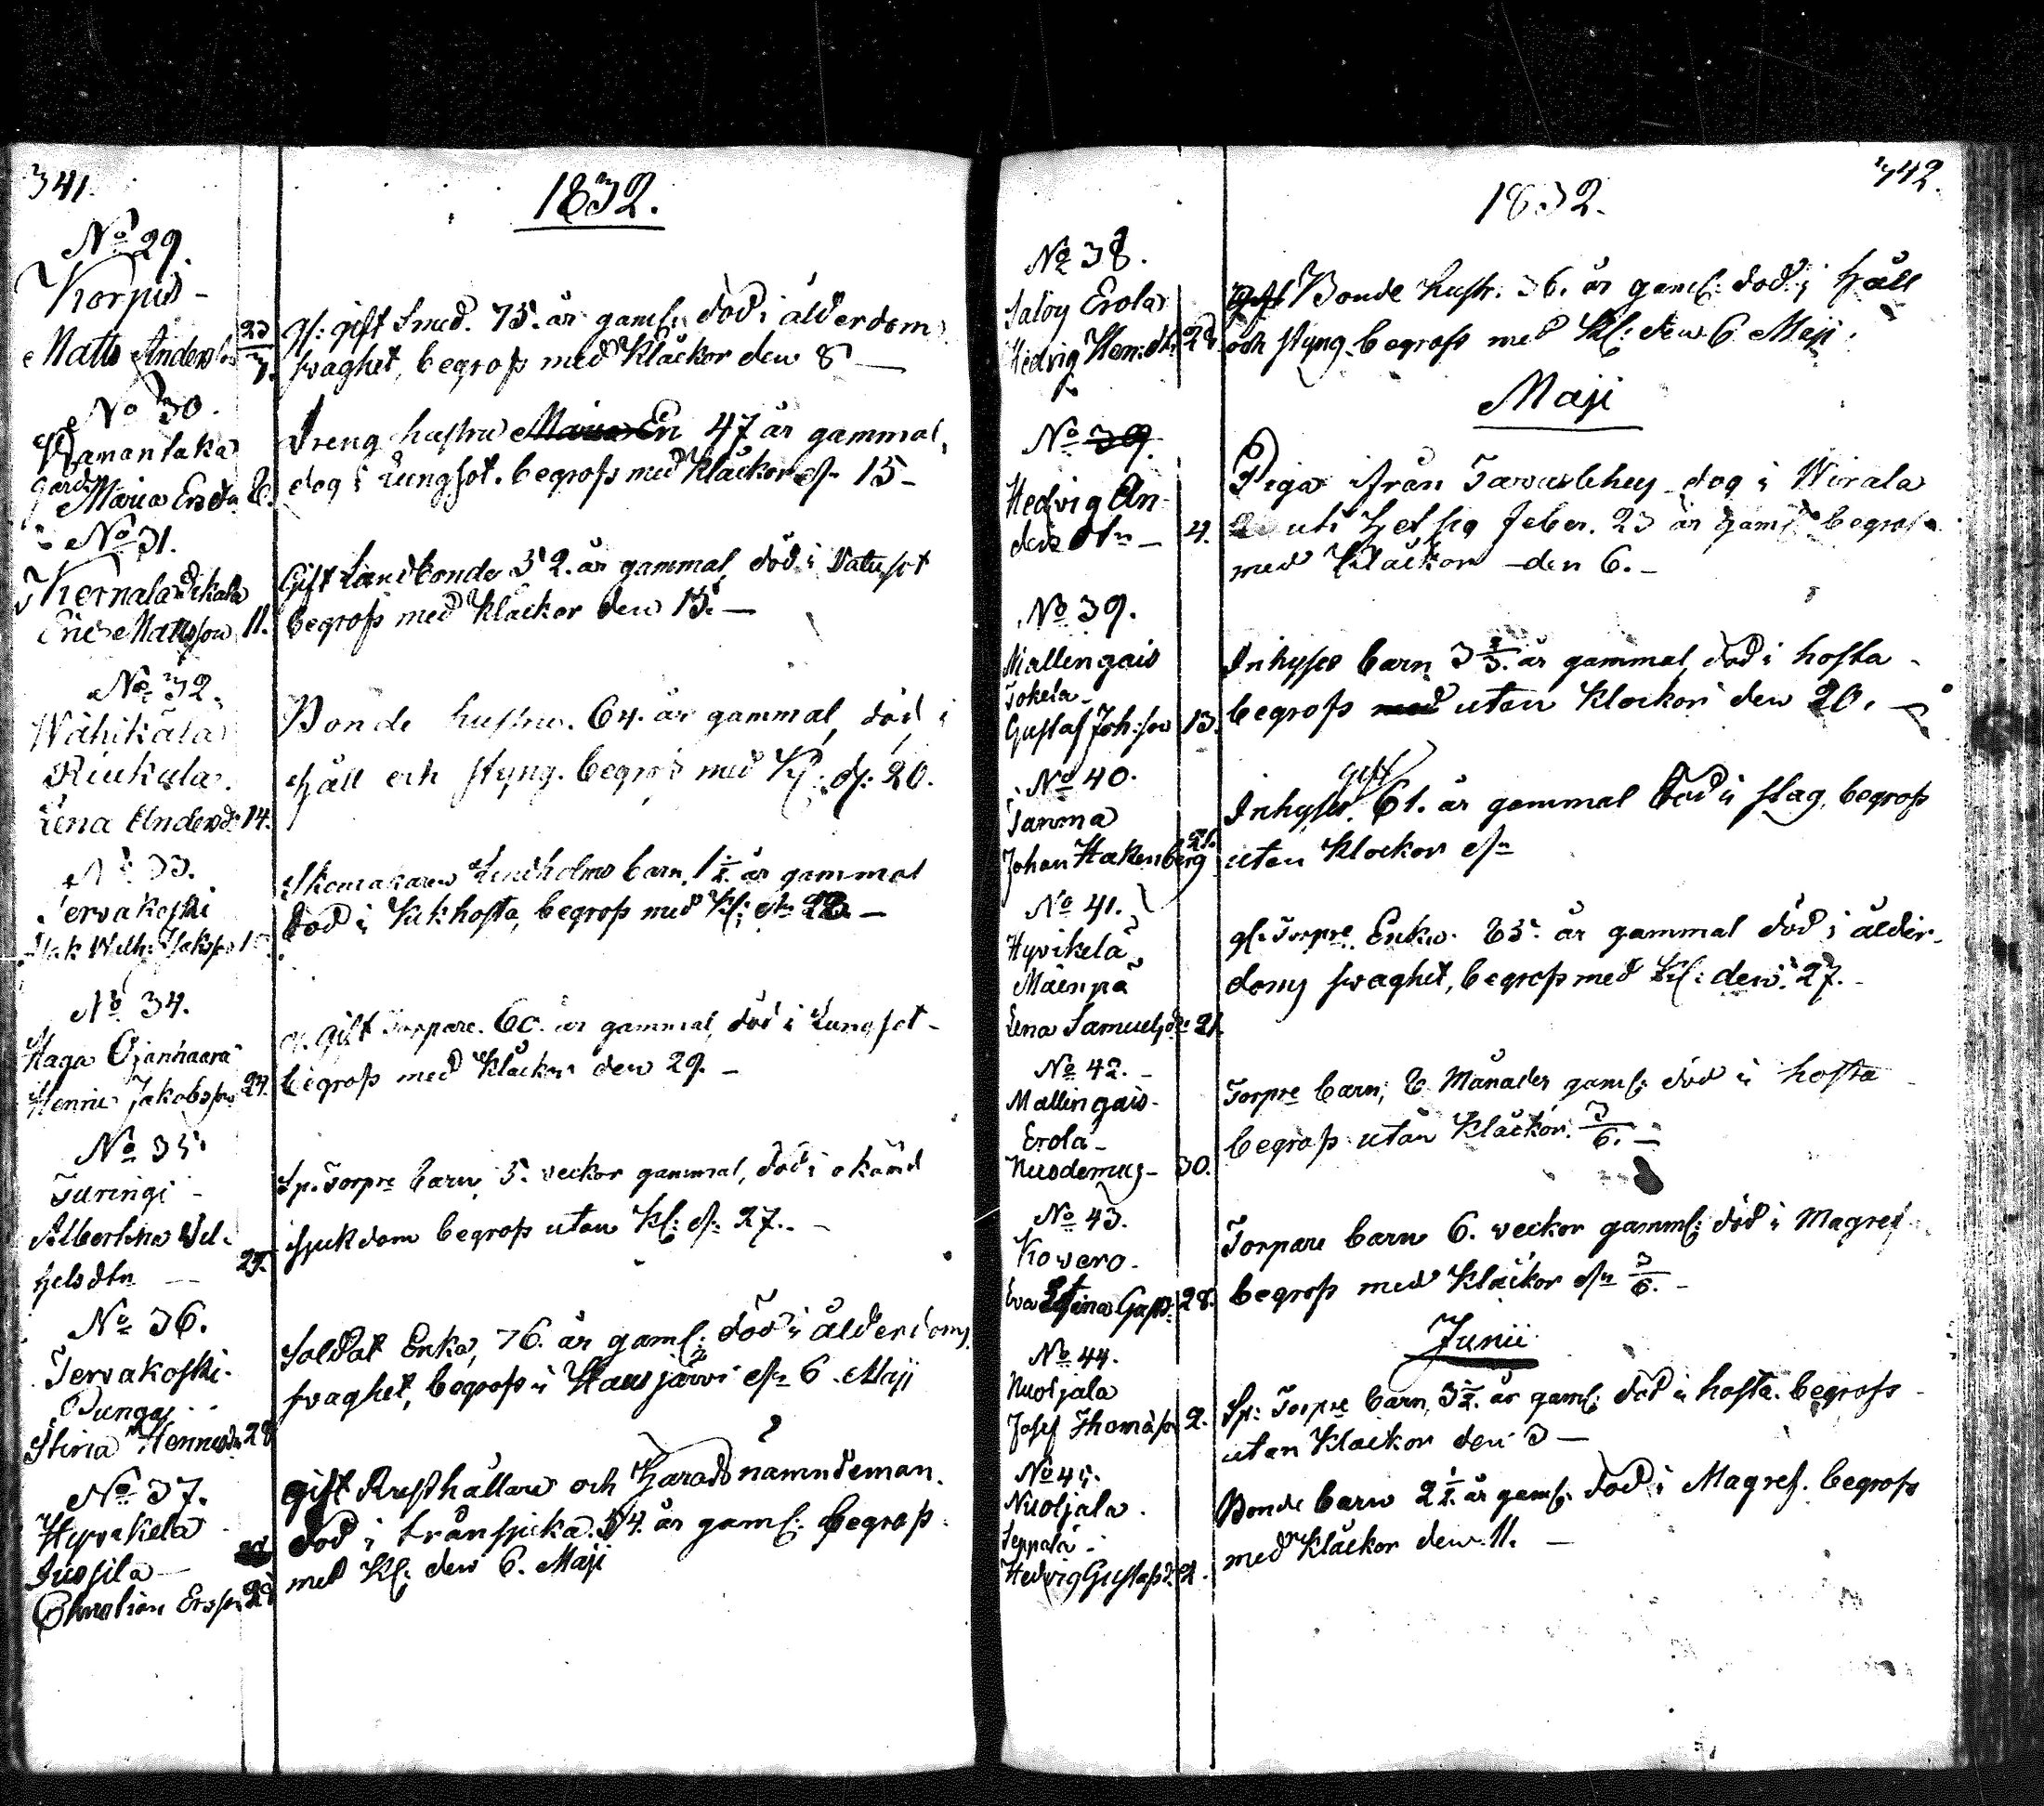 341.
1832.
No 29.
Korpis-
Matts Andersson 23/3. gl: gift Smed. 75. år gaml: död i ålderdoms
svaghet, begrofs med Klåckor den 8 —
No 30.
Damantaka
gård Dreng hustru 47 år gammal,
Maria Ersdtr 6. dog i Lungsot. begrofs med Klåckor dn 15 —
No 31.
Kernala Gift Landbonde 52. år gammal, död i
Eric Mattsson 11. begrofs med Klåckor den 15. —
No 32.
Wähikälä Bonde hustru. 64. år gammal, död i
Riukula. Håll och styng. begrofs med Kl: d: 20.
Lena Andersd: 14.
No 33.
Tervakoski Skomakaren Lindholms barn, 1 1/2 år gammal
Isak Wilh: Isaksson död i Kikhosta, begrofs med Kl: dn 22. —
No 34.
Haga Ojanhaara gl. gift Torpare. 60. år gammal, död i Lungsot -
Henric Jakobsson 24. begrofs med Klåckor den 29. —
No 35.
Turingi - Sp. Torpre barn, 5. veckor gammal, död i okänd
Albertina Vil- sjukdom begrofs utan Kl: dn 27. —
helsdtr — 25.
No 36.
Tervakoski. Soldat Enka, 76. år gaml: död i ålderdoms
Punga svaghet, begrofs i Hausjärvi dn 6. Maji
Stina Hennriksdr 28
No 37.
Hyvikelä gift Rusthållare och Härads nämndeman.
Jussila — död i trånsjuka. 54. år gaml: begrofs
Christian Ersson 28 med Kl: den 6. Maji
342.
1832.
No 38.
Saloy Erola Bonde hustr. 36. år gaml: död i Håll
Hedvig Hen:dtr 28 och styng. begrofs med Kl: den 6 Maji.
Maji
No 39.
Hedvig An- Piga ifrån Tavastehus dog i Wirala
ders dtr — 4. uti Hetsig feber. 23 år gaml: begrofs
med Klåckor — den 6. —
No 39.
Mallingais Inhyses barn 3 år gammal, död i hosta -
Tokela — begrofs utan Klockor den 20. —
Gustaf Joh:son 13.
No 40. gift
Tanma Inhyses. 61. år gammal död i slag, begrofs
Johan Hakenberg 21. utan Klockor dn
No 41.
Hyvikelä gl. Torpre. Enka. 85. år gammal död i ålder-
Mäenpä doms svaghet, begrofs med Kl: den 27. —
Lena Samuelsdr 21
No 42. —
Mallingais - Torpre barn, 8 Månader gaml: död i hosta
Erola — begrofs utan Klåckor. 3/6. —
Nicodemus — 30.
No 43.
Kovero. Torpare barn 6. veckor gamml: död i Magref
Eva Stina 28. begrofs med Klåckor dn 3/6. —
Junii
No 44.
Nuoljala Sp: Torpre barn, 3 1/2. år gaml: död i hosta. begrofs
Josef Thomasson 2. utan Klåckor den 3 —
No 45.
Nuoljala. Bonde barn 2 1/2. år gaml: död i Magref. begrofs
Seppälä - med Klåckor den 11. —
Hedvig Gustafsd: 2.